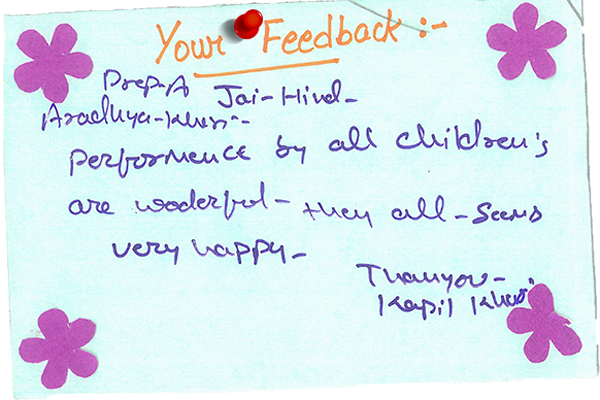 Your Feedback :-
Prep-A Jai-Hind-
Aradhya-
Performence by all children's
are woderful- they all - seems
very happy-
Thanyou-
Kapil